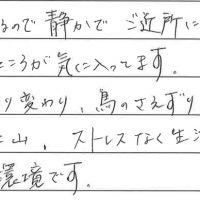 るので静かで ご近所に
ところが気に入ってます。
り変わり、鳥のさえずり
と山、ストレスなく生活
環境です。